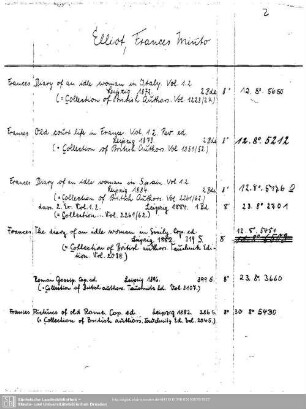 2
Elliot, Frances Minto
Frances Diary of an idle woman in Italy. Vol. 1.2
Leipzig 1872. 2 Bde 8° 12. 8°. 5050
(= Collection of British Authors. Vol. 1223/24)
Frances Old court life in France. Vol. 1.2. Cop. ed
Leipzig 1873. 2 Bde 8° 12. 8°. 5212
(= Collection of British Authors. Vol. 1351/52)
Frances Diary of an idle woman in Spain. Vol. 1.2
Leipzig 1884. 2 Bde 8° 12. 8°. 5476
(= Collection of British Authors. Vol. 2241/42)
Leipzig 1884. 1 Bd 8° 23. 8° 2701
(= Collection... Vol. 2241/42)
Frances. The diary of an idle woman in Sicily. Cop. ed
Leipzig, 1882. 319 S. 8° 12. 8°. 5051
(= Collection of British authors. Tauchnitz Edi-
tion. Vol. 2038)
Roman Gossip. Cop. ed Leipzig 1896. 8° 23. 8° 3660
(= Collection of British authors. Tauchnitz Ed. Vol. 3107.)
Frances Pictures of old Rome. Cop. ed. Leipzig 1882. 286 S. 8° 30 8° 5430
(= Collection of British authors. Tauchnitz Ed. Vol. 2045.)